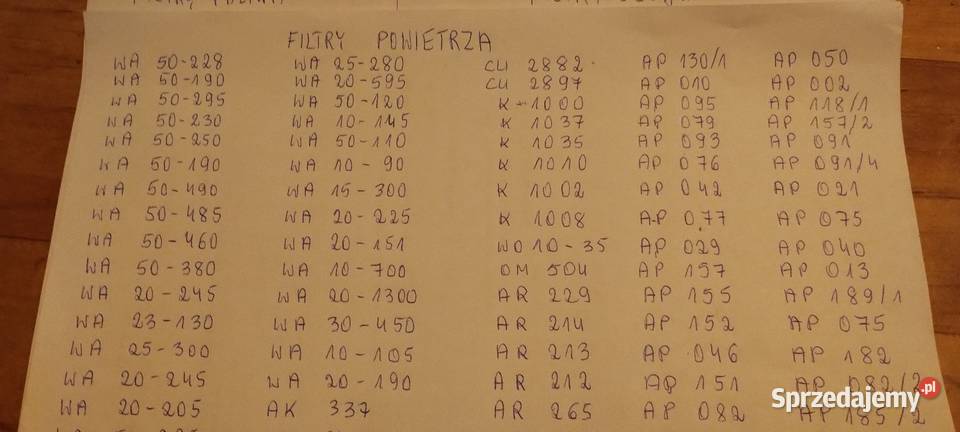 FILTRY POWIETRZA
WA 50-228 WA 25-280 CU 2882 AP 130/1 AP 050
WA 50-190 WA 20-595 CU 2897 AP 010 AP 002
WA 50-295 WA 50-120 K-1000 AP 095 AP 118/1
WA 50-230 WA 10-145 K 1037 AP 079 AP 157/2
WA 50-250 WA 50-110 K 1035 AP 093 AP 091
WA 50-190 WA 10-90 K 1010 AP 076 AP 091/4
WA 50-490 WA 15-300 K 1002 AP 042 AP 021
WA 50-485 WA 20-225 K 1008 AP 077 AP 075
WA 50-460 WA 20-151 WO 10-35 AP 029 AP 040
WA 50-380 WA 10-700 OM 504 AP 157 AP 013
WA 20-245 WA 20-1300 AR 229 AP 155 AP 189/1
WA 23-130 WA 30-450 AR 214 AP 152 AP 075
WA 25-300 WA 10-105 AR 213 AP 046 AP 182
WA 20-245 WA 20-190 AR 212 AP 151 AP 082/2
WA 20-205 AK 337 AR 265 AP 082 AP 185/2
Sprzedajemy.pl